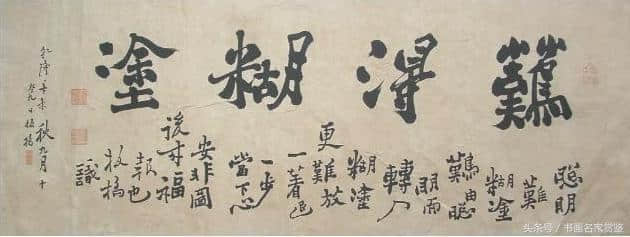 難得糊塗
聰明
難
糊塗
難由聰
明而
轉入
糊塗
更難放
一著退
一步
當下心
安非圖
後來福
報也
板橋
識
乾隆辛未秋九月十
頭条号 / 书画名家赏鉴